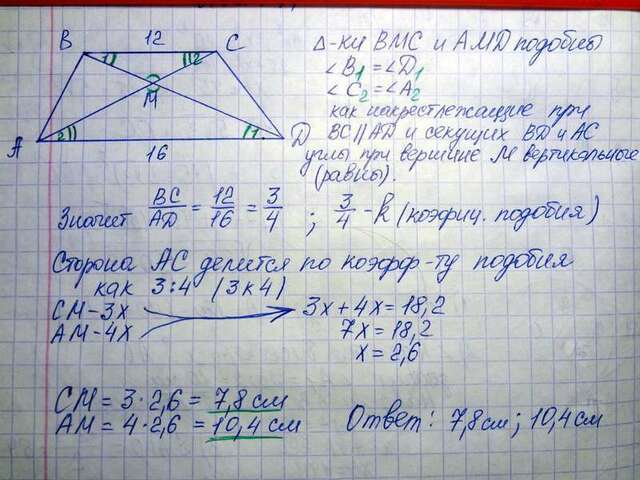 B 12 C
1 2
M
2 1
A D
16
Δ-ки BMC и AMD подобны
∠B₁=∠D₁
∠C₂=∠A₂
как накрестлежащие при
BC||AD и секущих BD и AC
углы при вершине M вертикальные
(равны).
Значит BC/AD = 12/16 = 3/4 ; 3/4 - k (коэфиц. подобия)
Сторона AC делится по коэфф-ту подобия
как 3:4 (3 к 4)
CM-3x
AM-4x
3x+4x=18,2
7x=18,2
x=2,6
CM = 3·2,6 = 7,8 см
AM = 4·2,6 = 10,4 см
Ответ: 7,8 см; 10,4 см